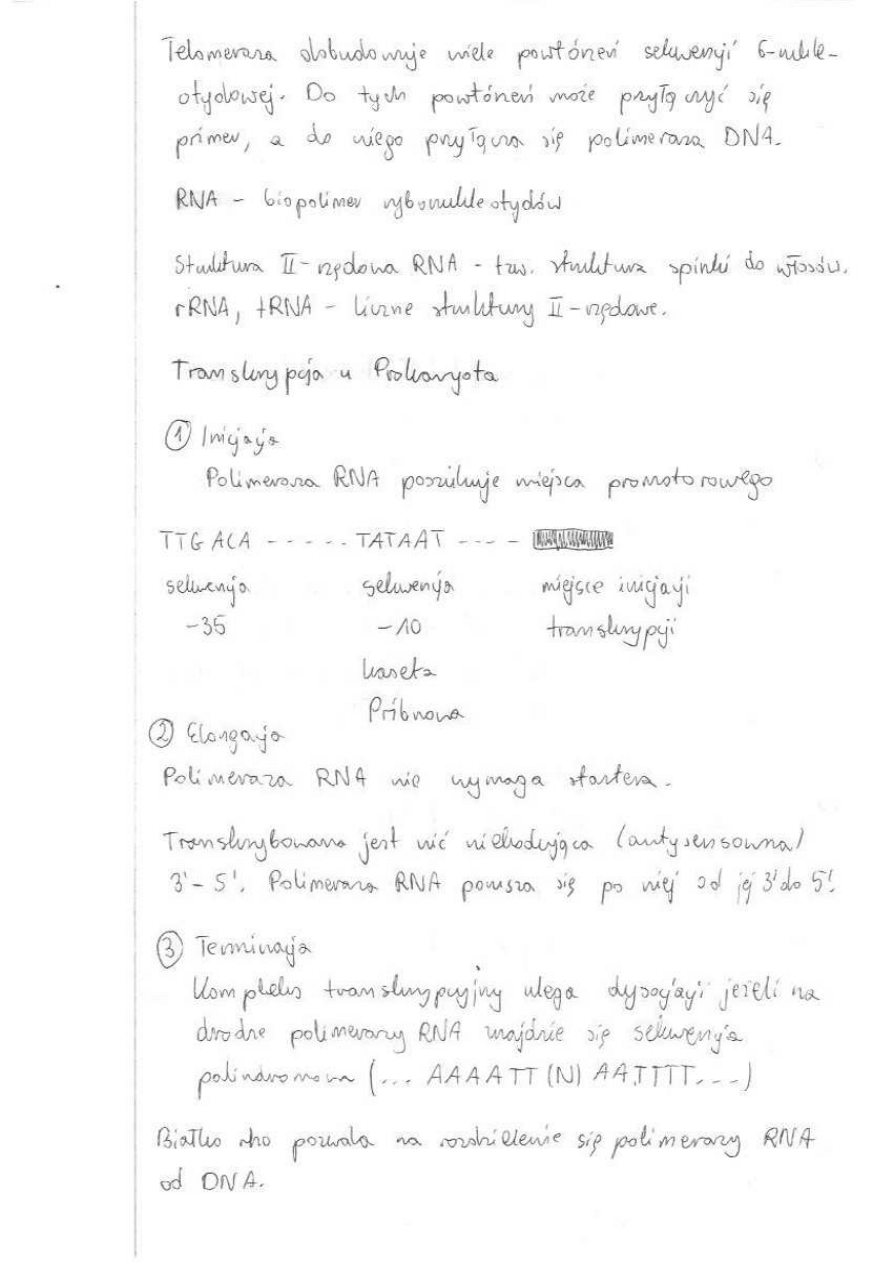 Telomeraza dobudowuje wiele powtórzeń sekwencji 6-nukle-
otydowej. Do tych powtórzeń może przyłączyć się
primer, a do niego przyłącza się polimeraza DNA.
RNA - biopolimer rybonukleotydów
Struktura II-rzędowa RNA - tzw. struktura spinki do włosów.
rRNA, tRNA - liczne struktury II-rzędowe.
Transkrypcja u Prokaryota
① Inicjacja
Polimeraza RNA poszukuje miejsca promotorowego
TTGACA - - - - - TATAAT - - - -
sekwencja sekwencja miejsce inicjacji
-35 -10 transkrypcji
kaseta
Pribnowa
② Elongacja
Polimeraza RNA nie wymaga startera.
Transkrybowana jest nić niekodująca (antysensowna)
3'-5'. Polimeraza RNA porusza się po niej od jej 3' do 5'.
③ Terminacja
Kompleks transkrypcyjny ulega dysocjacji jeżeli na
drodze polimerazy RNA znajdzie się sekwencja
palindromowa (... AAAATT (N) AATTTT...)
Białko rho pozwala na rozdzielenie się polimerazy RNA
od DNA.